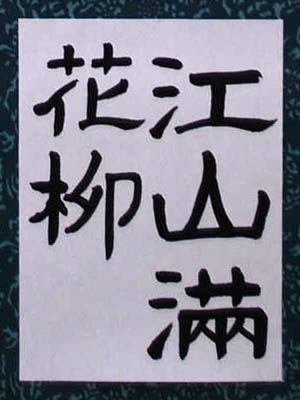 江山滿
花柳